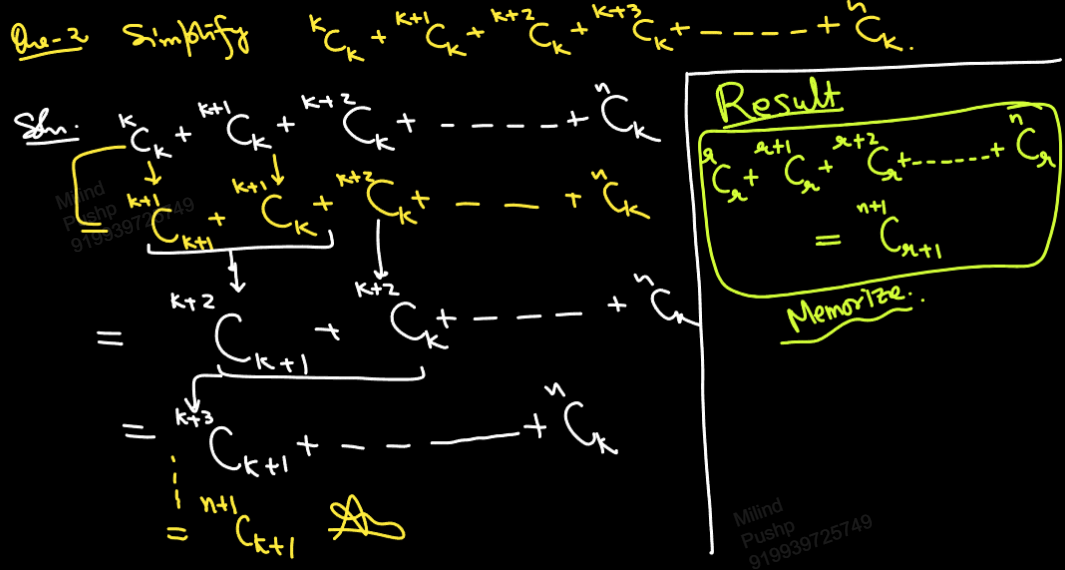 Que-2 Simplify ᵏCₖ + ᵏ⁺¹Cₖ + ᵏ⁺²Cₖ + ᵏ⁺³Cₖ + ----- + ⁿCₖ.
Soln. ᵏCₖ + ᵏ⁺¹Cₖ + ᵏ⁺²Cₖ + ----- + ⁿCₖ
= ᵏ⁺¹Cₖ₊₁ + ᵏ⁺¹Cₖ + ᵏ⁺²Cₖ + --- + ⁿCₖ
= ᵏ⁺²Cₖ₊₁ + ᵏ⁺²Cₖ + ---- + ⁿCₖ
= ᵏ⁺³Cₖ₊₁ + ---- + ⁿCₖ
= ⁿ⁺¹Cₖ₊₁
Result
ʳCᵣ + ʳ⁺¹Cᵣ + ʳ⁺²Cᵣ + ------ + ⁿCᵣ
= ⁿ⁺¹Cᵣ₊₁
Memorize..
Milind
Pushp
919939725749
Milind
Pushp
919939725749